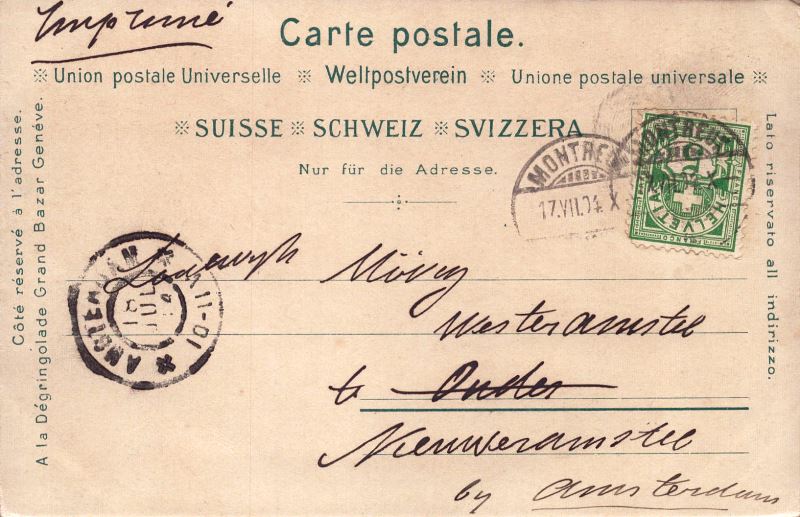 Imprimé
Carte postale.
※ Union postale Universelle ※ Weltpostverein ※ Unione postale universale ※
※ SUISSE ※ SCHWEIZ ※ SVIZZERA
Nur für die Adresse.
MONTREUX
17.VII.04 X
MONTREUX
HELVETIA
FRANCO
Côté réservé à l'adresse.
A la Dégringolade Grand Bazar Genève.
Lato riservato all indirizzo.
AMSTERDAM
18 JUL 04
Lodewyk
Westeramstel
te Ouder
Nieuweramstel
by Amsterdam